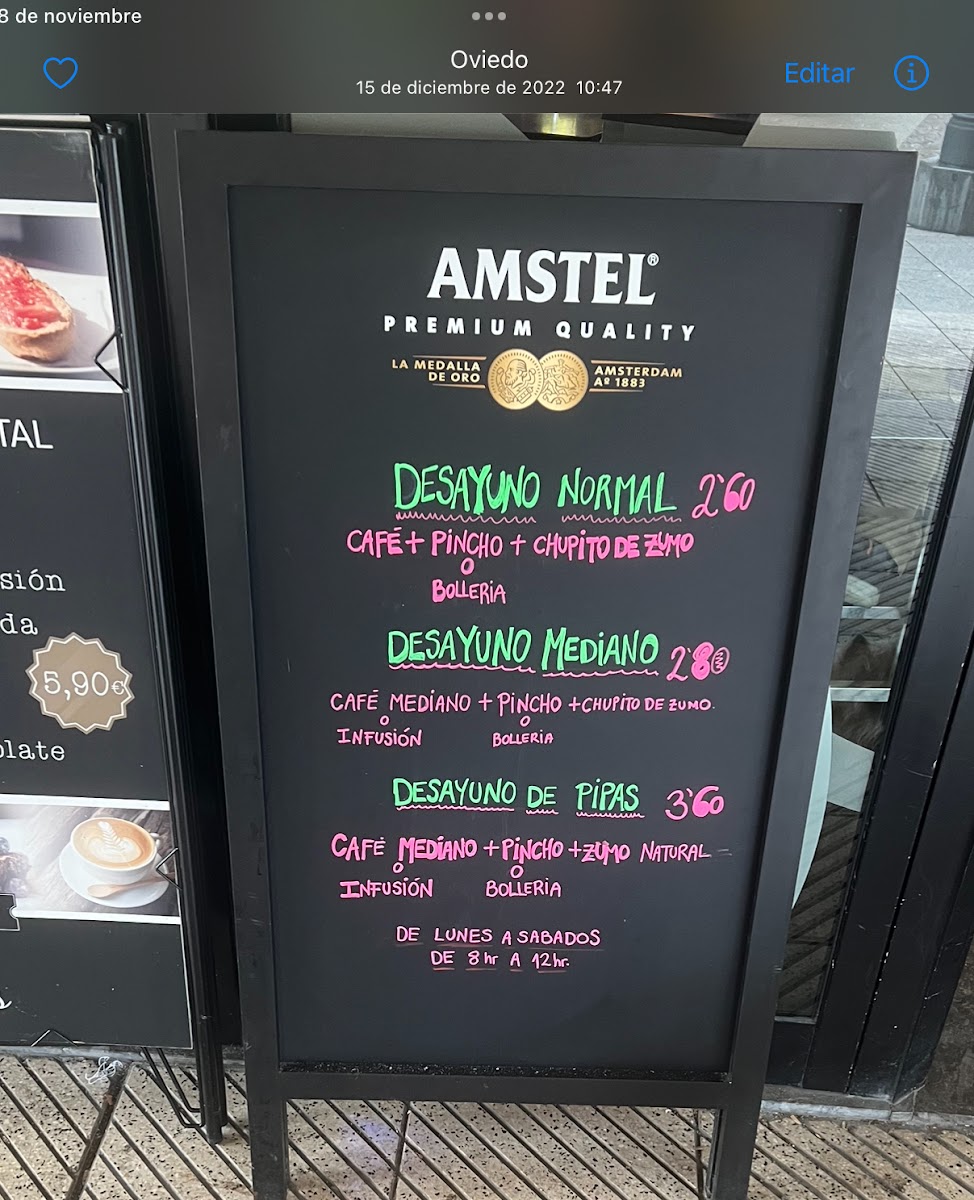 8 de noviembre
Oviedo
15 de diciembre de 2022 10:47
Editar
TAL
sión
da
5,90€
olate
AMSTEL®
PREMIUM QUALITY
LA MEDALLA DE ORO
AMSTERDAM Aº 1883
DESAYUNO NORMAL 2'60
CAFÉ + PINCHO + CHUPITO DE ZUMO
O
BOLLERIA
DESAYUNO MEDIANO 2'80
CAFÉ MEDIANO + PINCHO + CHUPITO DE ZUMO.
O O
INFUSIÓN BOLLERIA
DESAYUNO DE PIPAS 3'60
CAFÉ MEDIANO + PINCHO + ZUMO NATURAL
O O
INFUSIÓN BOLLERIA
DE LUNES A SABADOS
DE 8hr A 12hr.